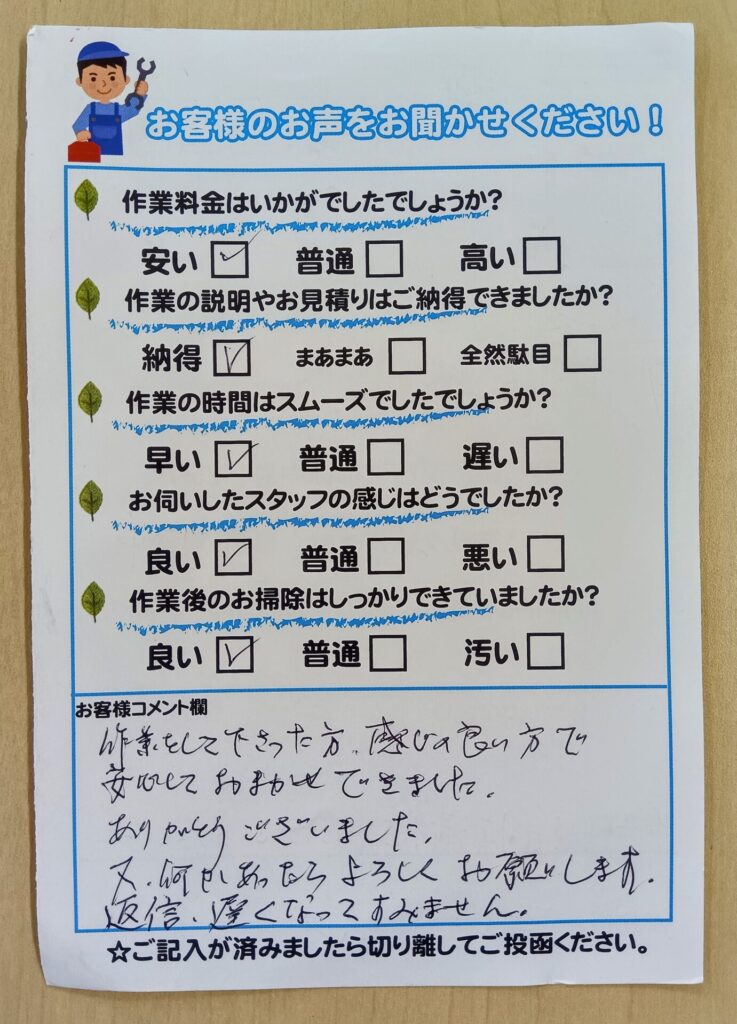 お客様のお声をお聞かせください！
作業料金はいかがでしたでしょうか?
安い 普通 高い
作業の説明やお見積りはご納得できましたか?
納得 まあまあ 全然駄目
作業の時間はスムーズでしたでしょうか?
早い 普通 遅い
お伺いしたスタッフの感じはどうでしたか?
良い 普通 悪い
作業後のお掃除はしっかりできていましたか?
良い 普通 汚い
お客様コメント欄
作業をして下さった方、感じの良い方で
安心しておまかせできました。
ありがとうございました。
又、何かあったらよろしくお願いします。
返信、遅くなってすみません。
☆ご記入が済みましたら切り離してご投函ください。